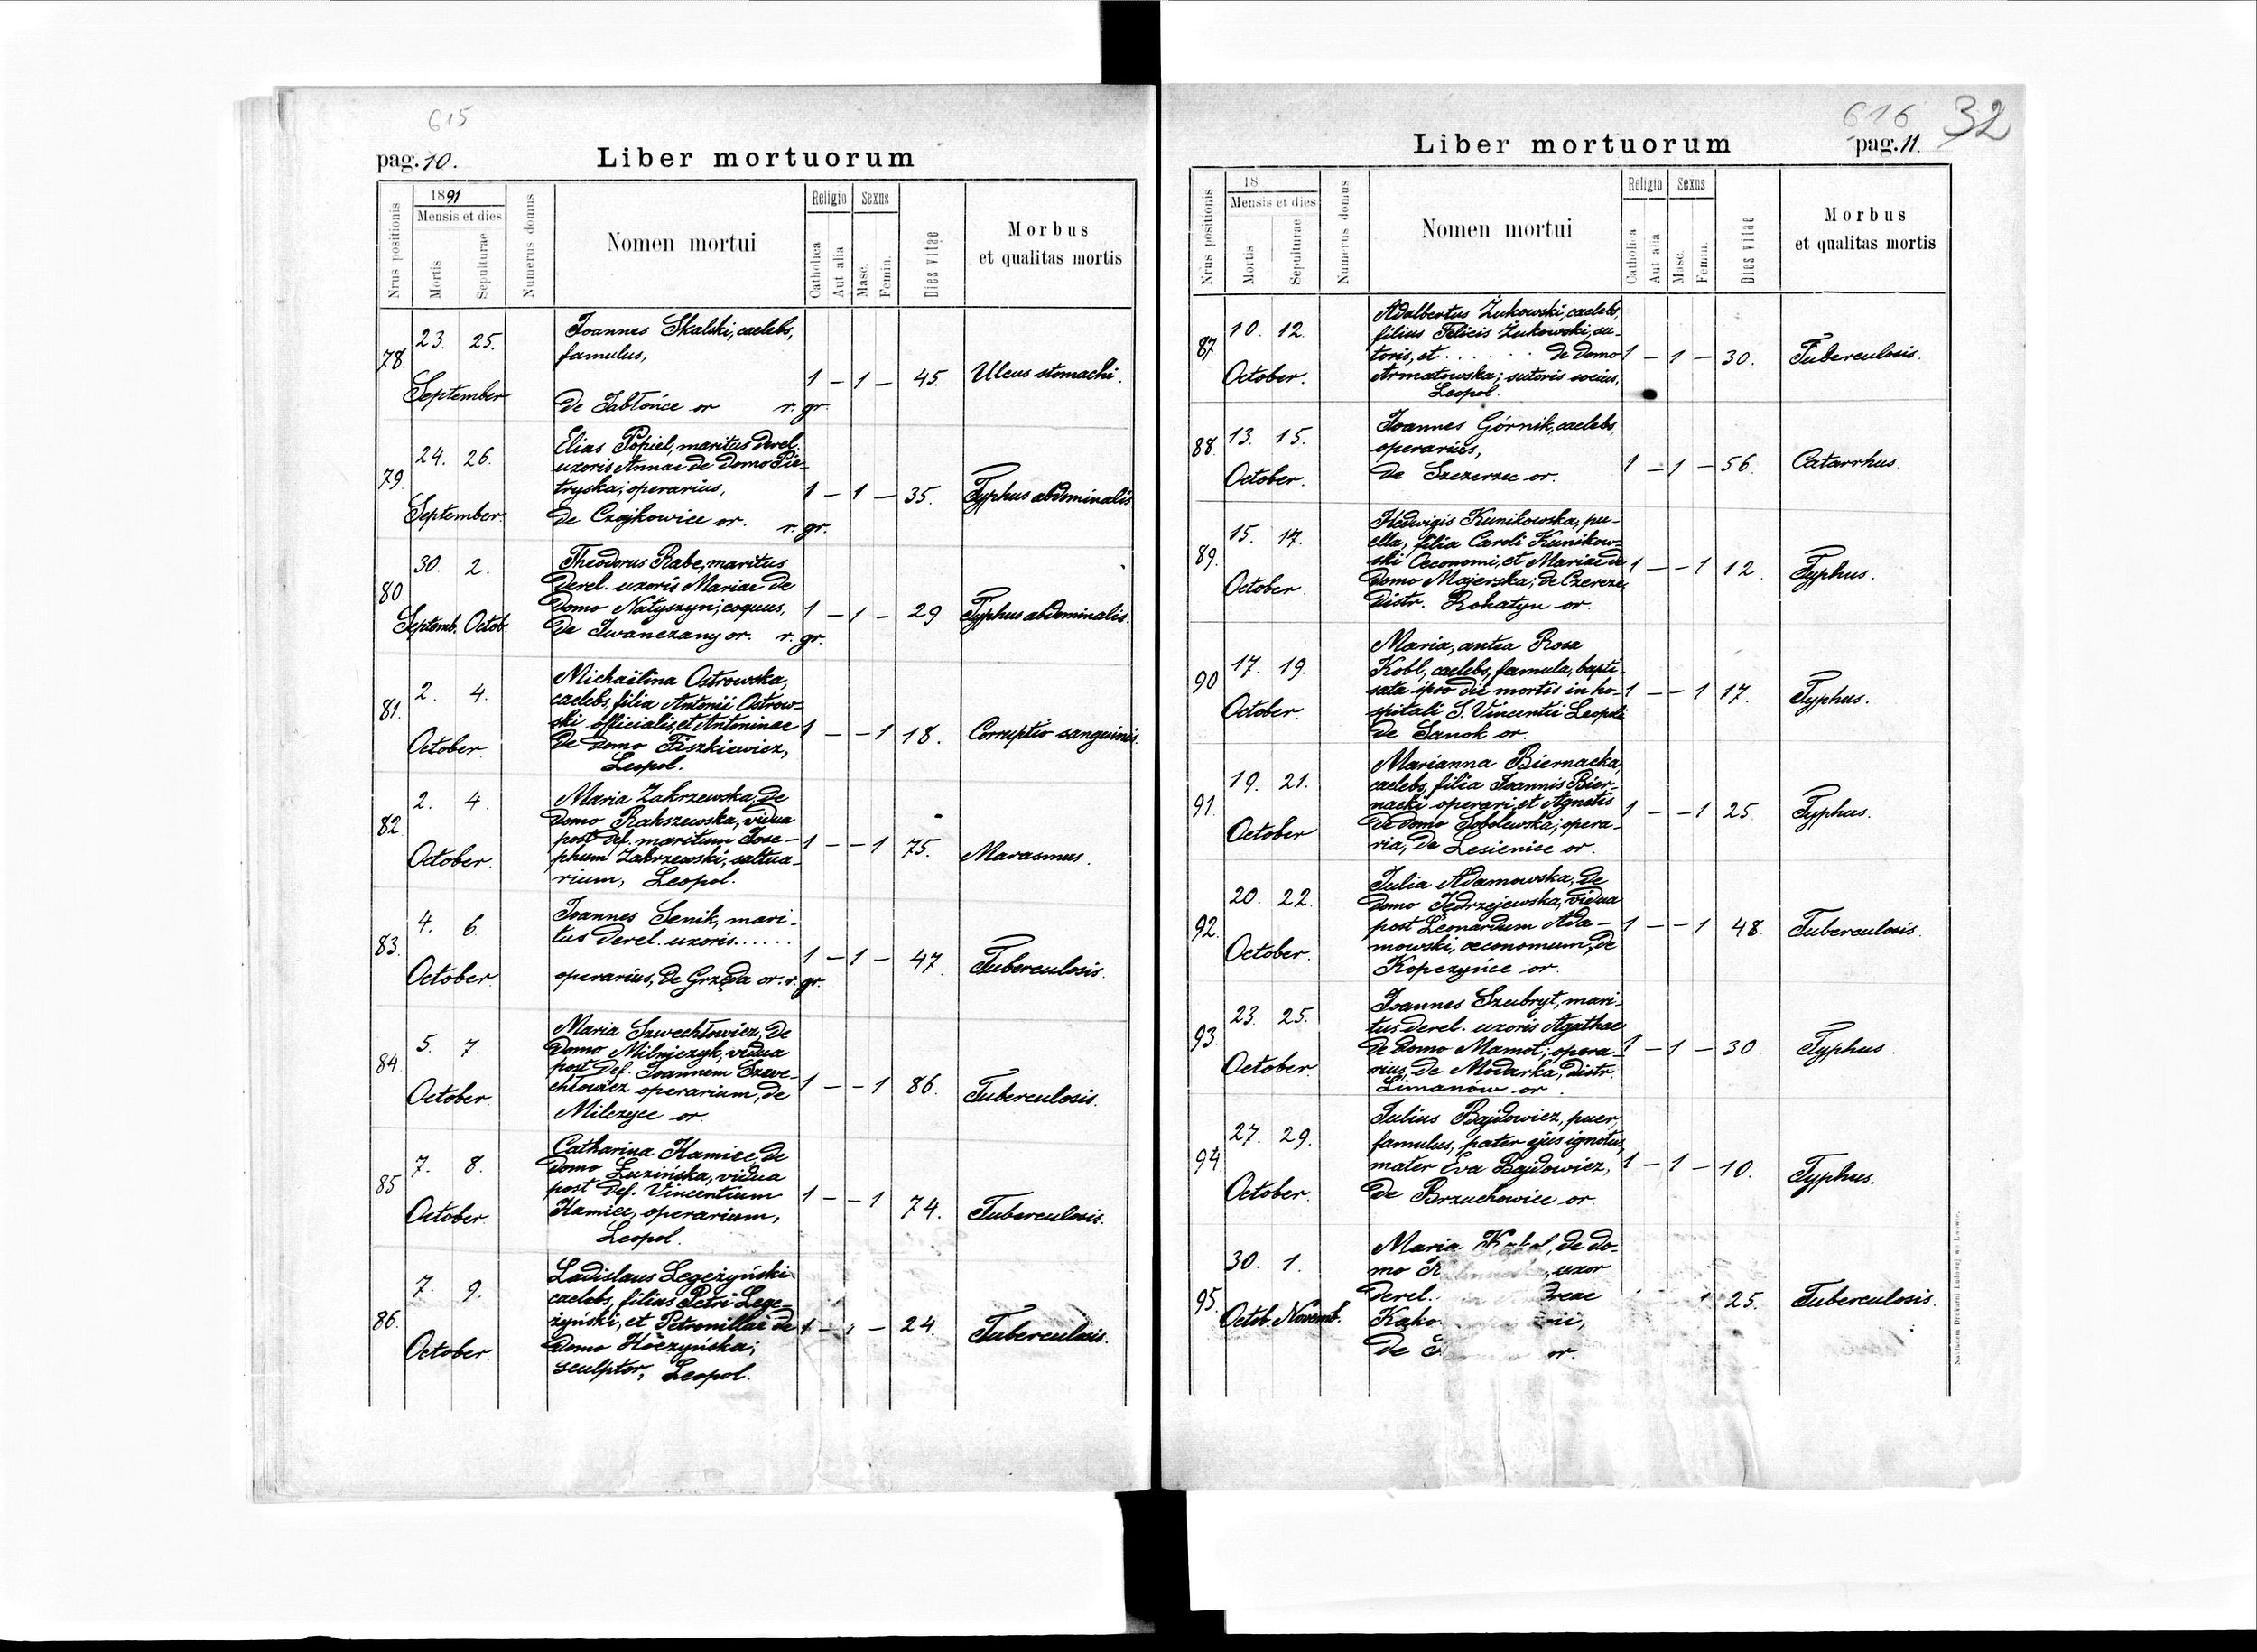 615
pag. 10.
Liber mortuorum
Nrus positionis
1891
Mensis et dies
Mortis
Sepulturae
Numerus domus
Nomen mortui
Religio
Catholica
Aut alia
Sexus
Masc.
Femin.
Dies vitae
Morbus
et qualitas mortis
78.
23. 25.
September
Joannes Skalski, caelebs,
famulus,
de Jabłońce or r. gr.
1 – 1 – 45. Ulcus stomachi.
79.
24. 26.
September.
Elias Popiel, maritus derel.
uxoris Annae de domo Pie-
tryska; operarius,
de Czajkowice or. r. gr.
1 – 1 – 35. Typhus abdominalis
80.
30. 2.
Septemb. Octob.
Theodorus Rabe, maritus
derel. uxoris Mariae de
domo Natyszyn; coquus,
de Iwanczany or. r. gr.
1 – 1 – 29 Typhus abdominalis.
81.
2. 4.
October.
Michaëlina Ostrowska,
caelebs, filia Antonii Ostrow-
ski officialis, et Antoninae
de domo Fiszkiewicz,
Leopol.
1 – – 1 18. Corruptio sanguinis.
82.
2. 4.
October.
Maria Zakrzewska, de
domo Rakszewska, vidua
post def. maritum Jose-
phum Zakrzewski, saltua-
rium, Leopol.
1 – – 1 75. Marasmus.
83.
4. 6
October.
Joannes Senik, mari-
tus derel. uxoris......
operarius, de Grzęda or. r. gr.
1 – 1 – 47. Tuberculosis.
84.
5. 7.
October.
Maria Szwechłowicz, de
domo Milniczyk, vidua
post def. Joannem Szwe-
chłowicz operarium, de
Milczyce or.
1 – – 1 86. Tuberculosis.
85
7. 8.
October.
Catharina Kamiec, de
domo Łuzińska, vidua
post def. Vincentium
Kamiec, operarium,
Leopol.
1 – – 1 74. Tuberculosis.
86.
7. 9.
October.
Ladislaus Legeżyński
caelebs, filius Petri Lege-
żyński, et Petronillae de
domo Hoczyńska;
sculptor, Leopol.
1 – 1 – 24. Tuberculosis.
616 32
Liber mortuorum
pag. 11.
Nrus positionis
18
Mensis et dies
Mortis
Sepulturae
Numerus domus
Nomen mortui
Religio
Catholica
Aut alia
Sexus
Masc.
Femin.
Dies vitae
Morbus
et qualitas mortis
87.
10. 12.
October.
Adalbertus Żukowski, caelebs,
filius Felicis Żukowski, su-
toris, et . . . . . . de domo
Armatowska; sutoris socius,
Leopol.
1 – 1 – 30. Tuberculosis.
88.
13. 15.
October.
Joannes Górnik, caelebs,
operarius,
de Szczerzec or.
1 – 1 – 56. Catarrhus.
89.
15. 17.
October.
Hedwigis Kunikowska, pu-
ella, filia Caroli Kunikow-
ski Oeconomi, et Mariae de
domo Majerska; de Czercze,
distr. Rohatyn or.
1 – – 1 12. Typhus.
90
17. 19.
October.
Maria, antea Rosa
Kobl, caelebs, famula, bapti-
sata ipso die mortis in ho-
spitali S. Vincentii Leopoli
de Sanok or.
1 – – 1 17. Typhus.
91.
19. 21.
October
Marianna Biernacka,
caelebs, filia Joannis Bier-
nacki operari, et Agnetis
de domo Sobolewska; opera-
ria, de Lesienice or.
1 – – 1 25. Typhus.
92.
20. 22.
October.
Julia Adamowska, de
domo Jędrzejewska, vidua
post Leonardum Ada-
mowski, oeconomum, de
Kopczyńce or.
1 – – 1 48. Tuberculosis.
93.
23. 25.
October.
Joannes Szubryt, mari-
tus derel. uxoris Agathae
de domo Mamot; opera-
rius, de Modarka, distr.
Limanów or.
1 – 1 – 30. Typhus.
94.
27. 29.
October.
Julius Bajdowicz, puer,
famulus, pater ejus ignotus,
mater Eva Bajdowicz,
de Brzuchowice or.
1 – 1 – 10. Typhus.
95.
30. 1.
Octob. Novemb.
Maria, de do-
mo, uxor
derel.
de or.
1 25. Tuberculosis.
Nakładem Drukarni Ludowej we Lwowie.